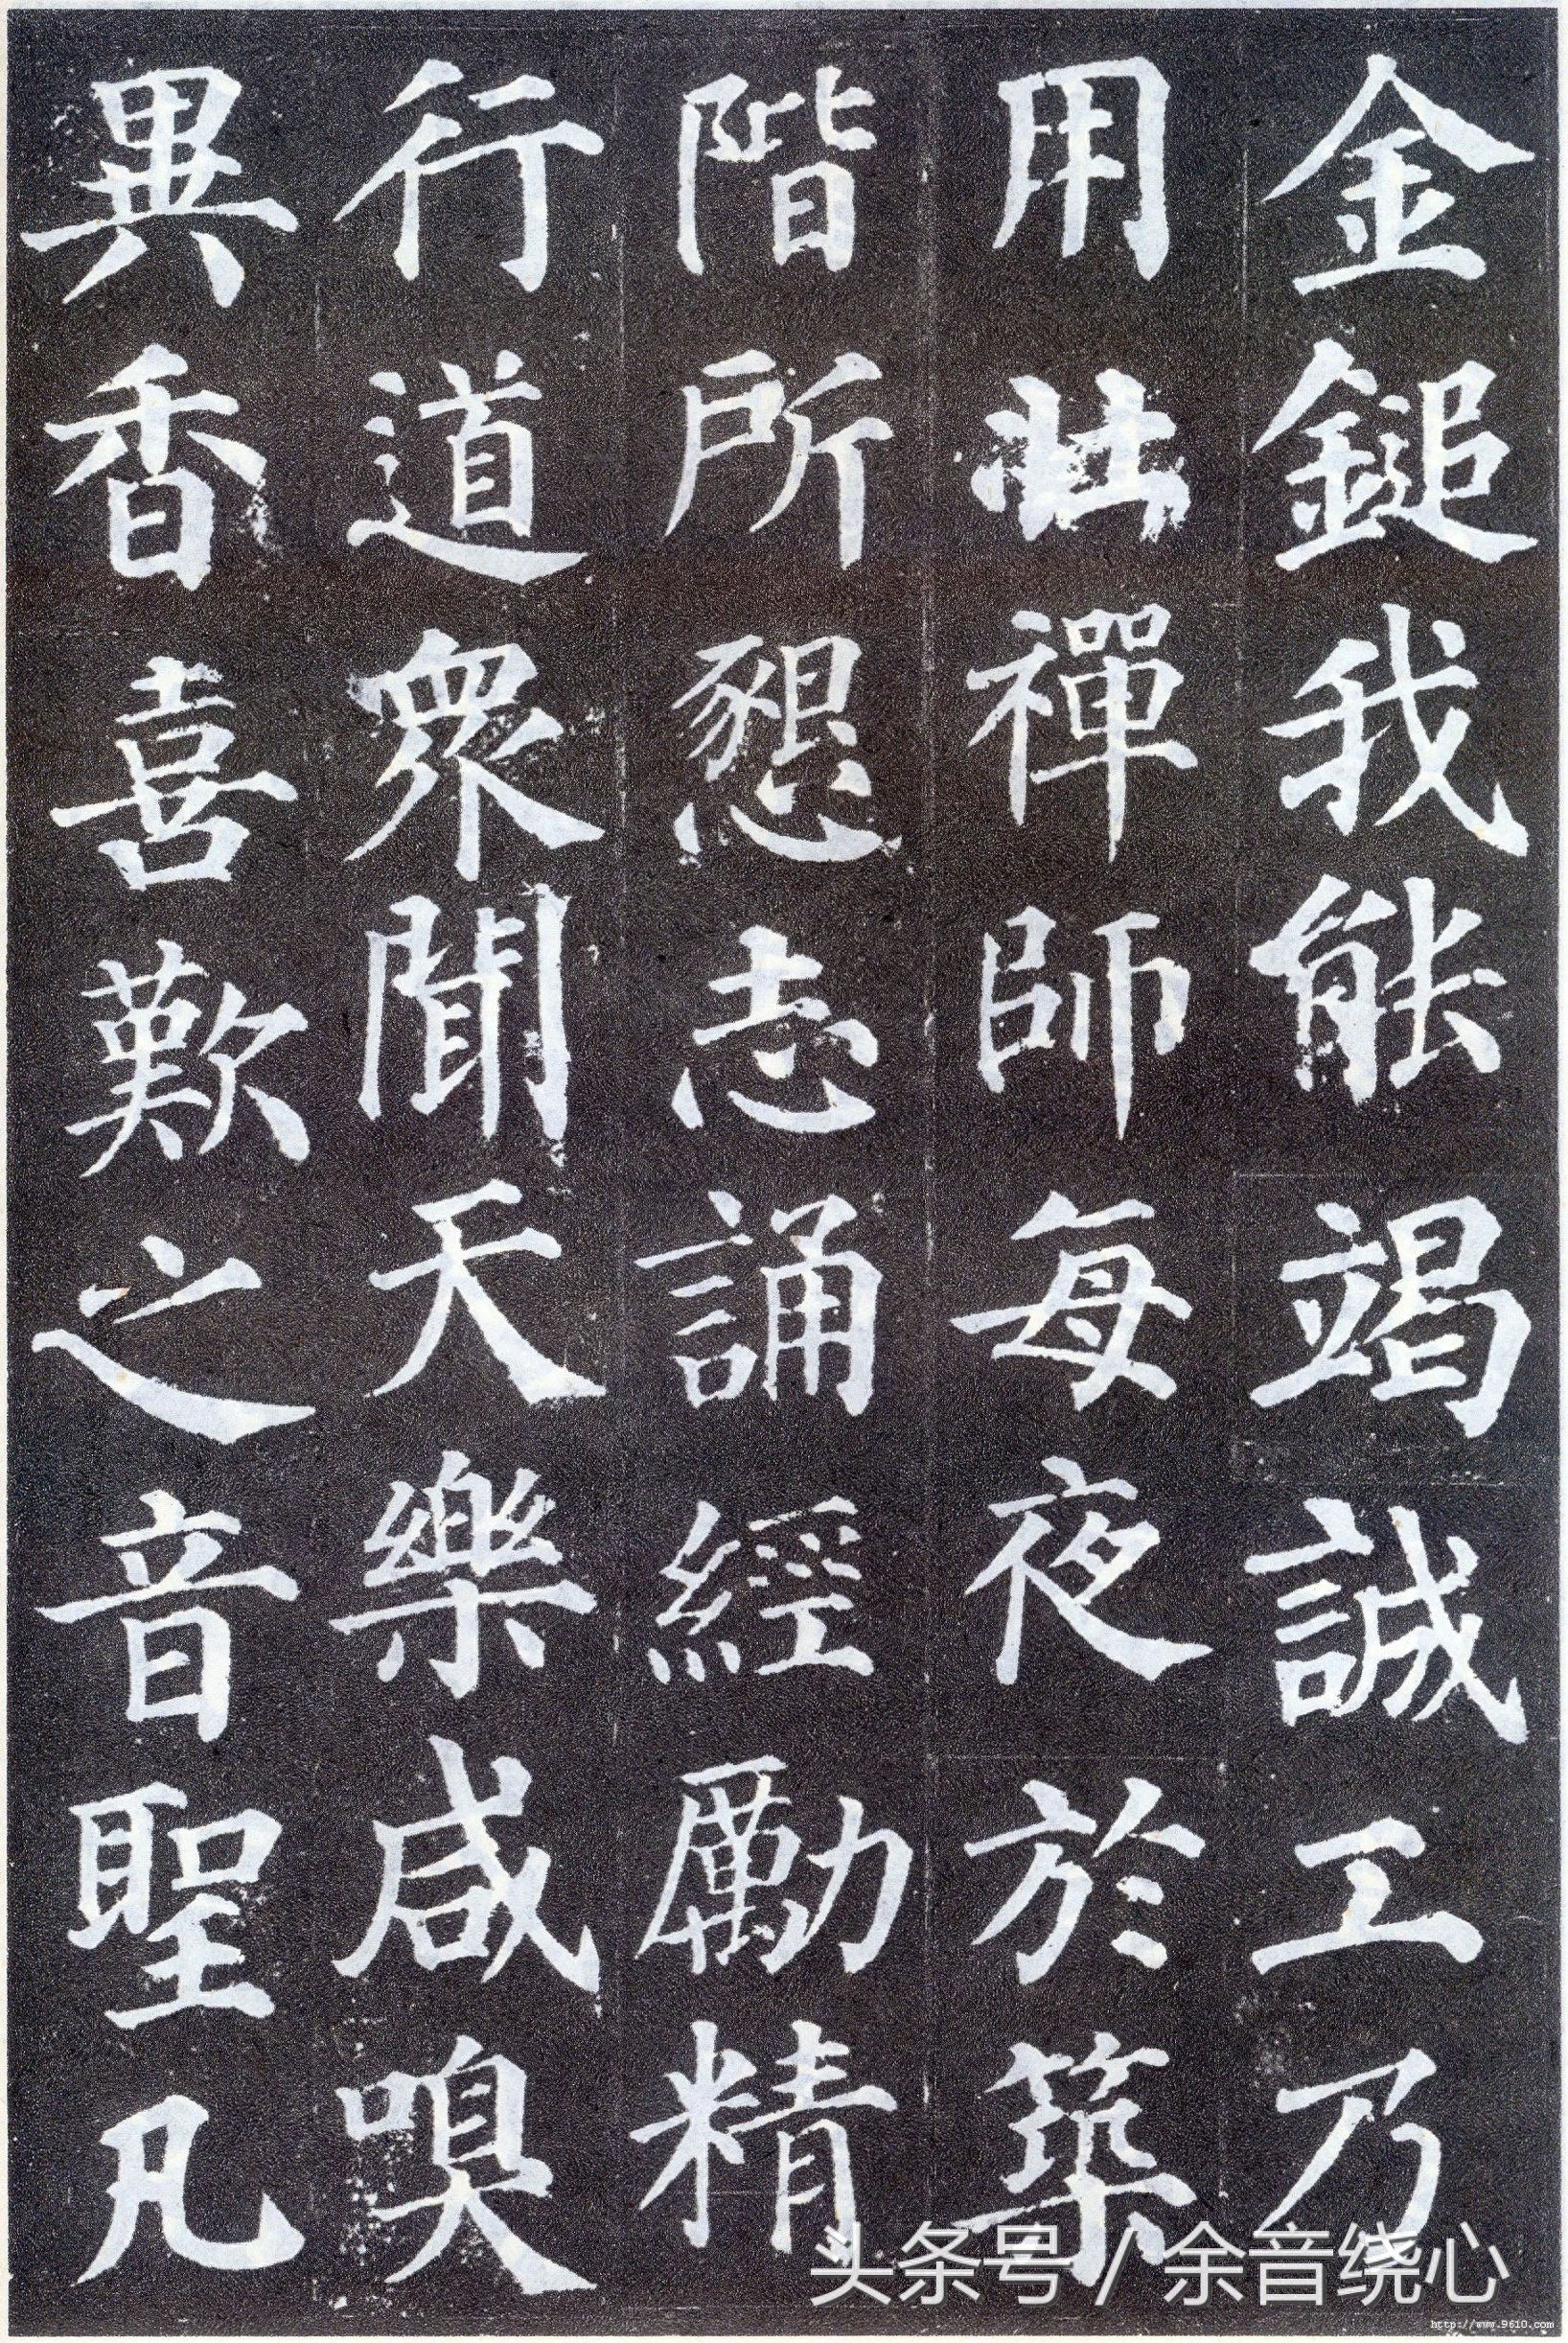 金鎚我能竭誠工乃
用壯禪師每夜於築
階所懇志誦經勵精
行道衆聞天樂咸嗅
異香喜歎之音聖凡
头条号 / 余音绕心
http://www.9610.com